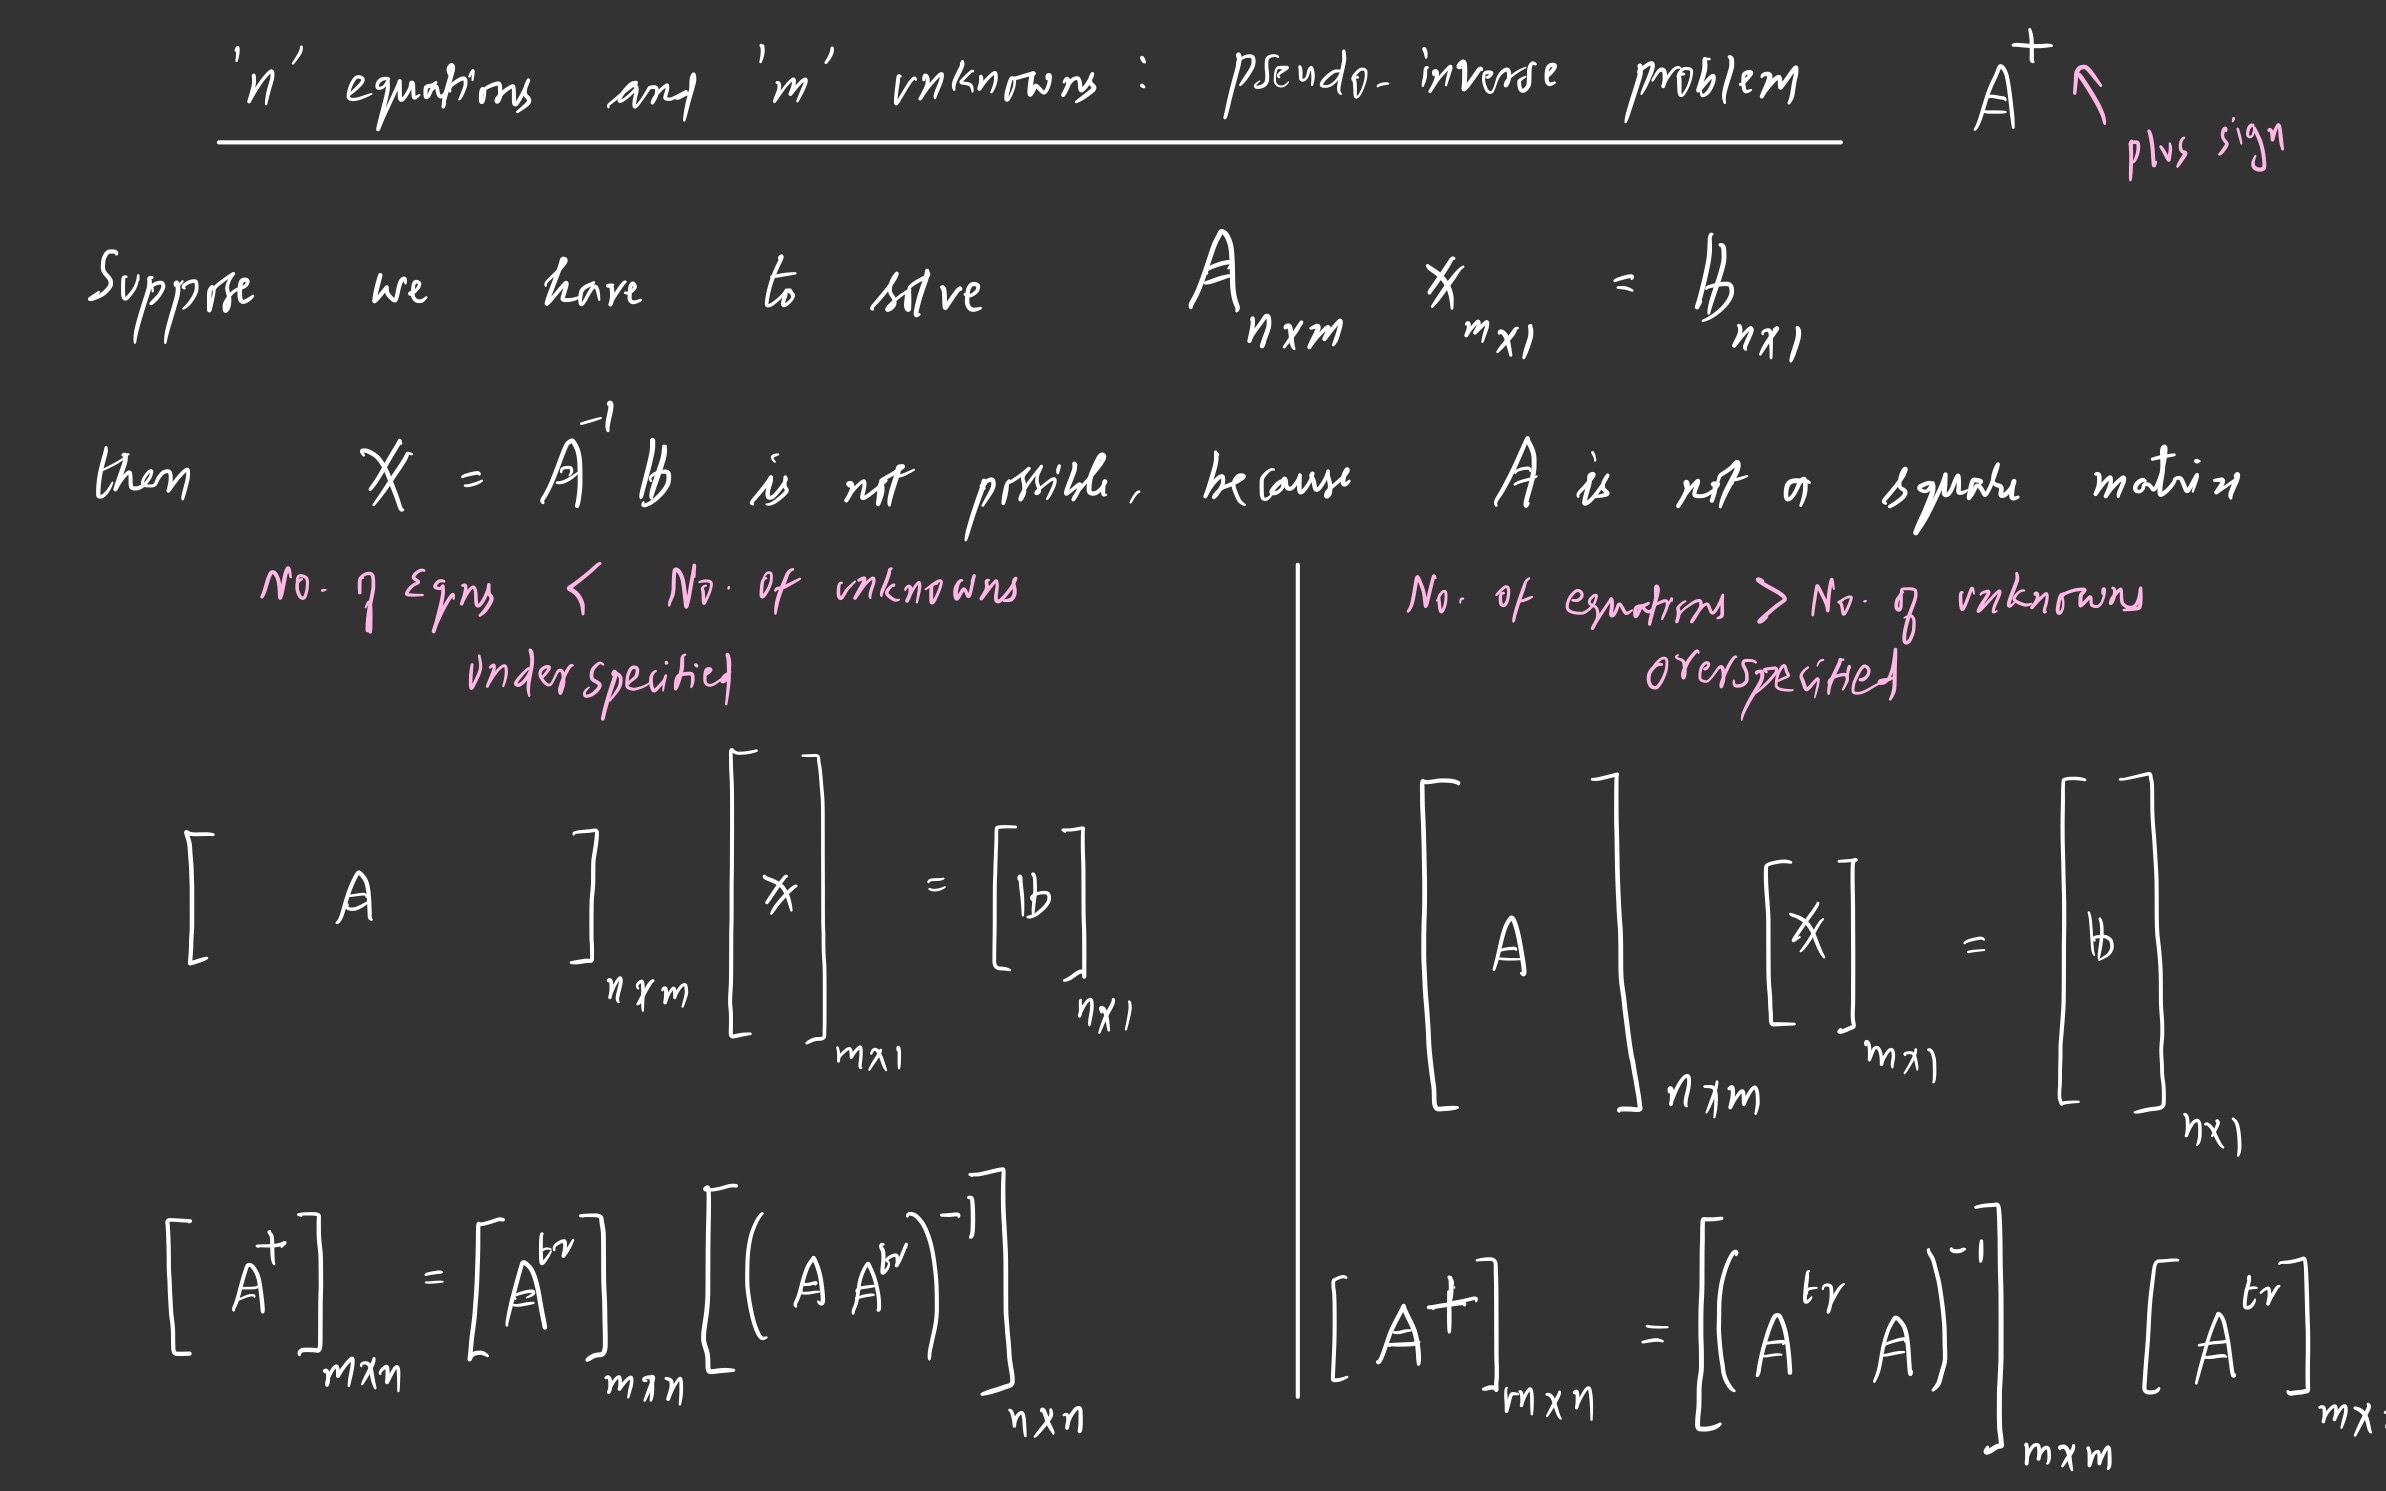 'n' equations and 'm' unknowns : pseudo-inverse problem A⁺
plus sign
Suppose we have to solve A n×m x m×1 = b n×1
then x = A⁻¹ b is not possible, because A is not a square matrix
No. of Eqns < No. of unknowns
underspecified
[ A ] n×m [ x ] m×1 = [ b ] n×1
[ A⁺ ] m×n = [ A^tr ] m×n [ ( A A^tr )⁻¹ ] n×n
No. of equations > No. of unknowns
overspecified
[ A ] n×m [ x ] m×1 = [ b ] n×1
[ A⁺ ] m×n = [ ( A^tr A )⁻¹ ] m×m [ A^tr ] m×